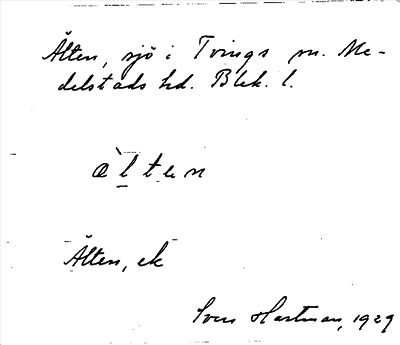 Älten, sjö i Tvings sn. Me-
delstads hd. Blek. l.
æ̀lten
Älten, ek
Sven Hartman, 1929